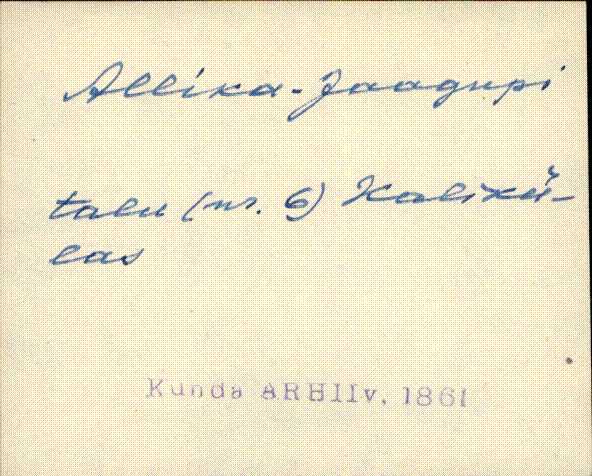 Allika-Jaagupi
talu (nr. 6) Kaliкü-
las
Kunda ARHIIv, 1861